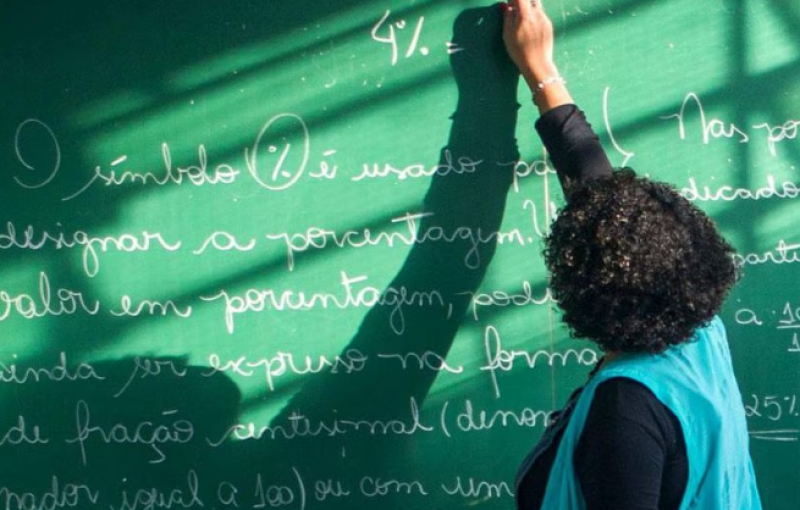 4% =
O símbolo % é usado pa
designar a porcentagem. O
valor em porcentagem, pode
ainda ser expresso na forma
de fração centesimal (denomi
nador igual a 100) ou com um
Nas po
dicado
parti
a 10
25%